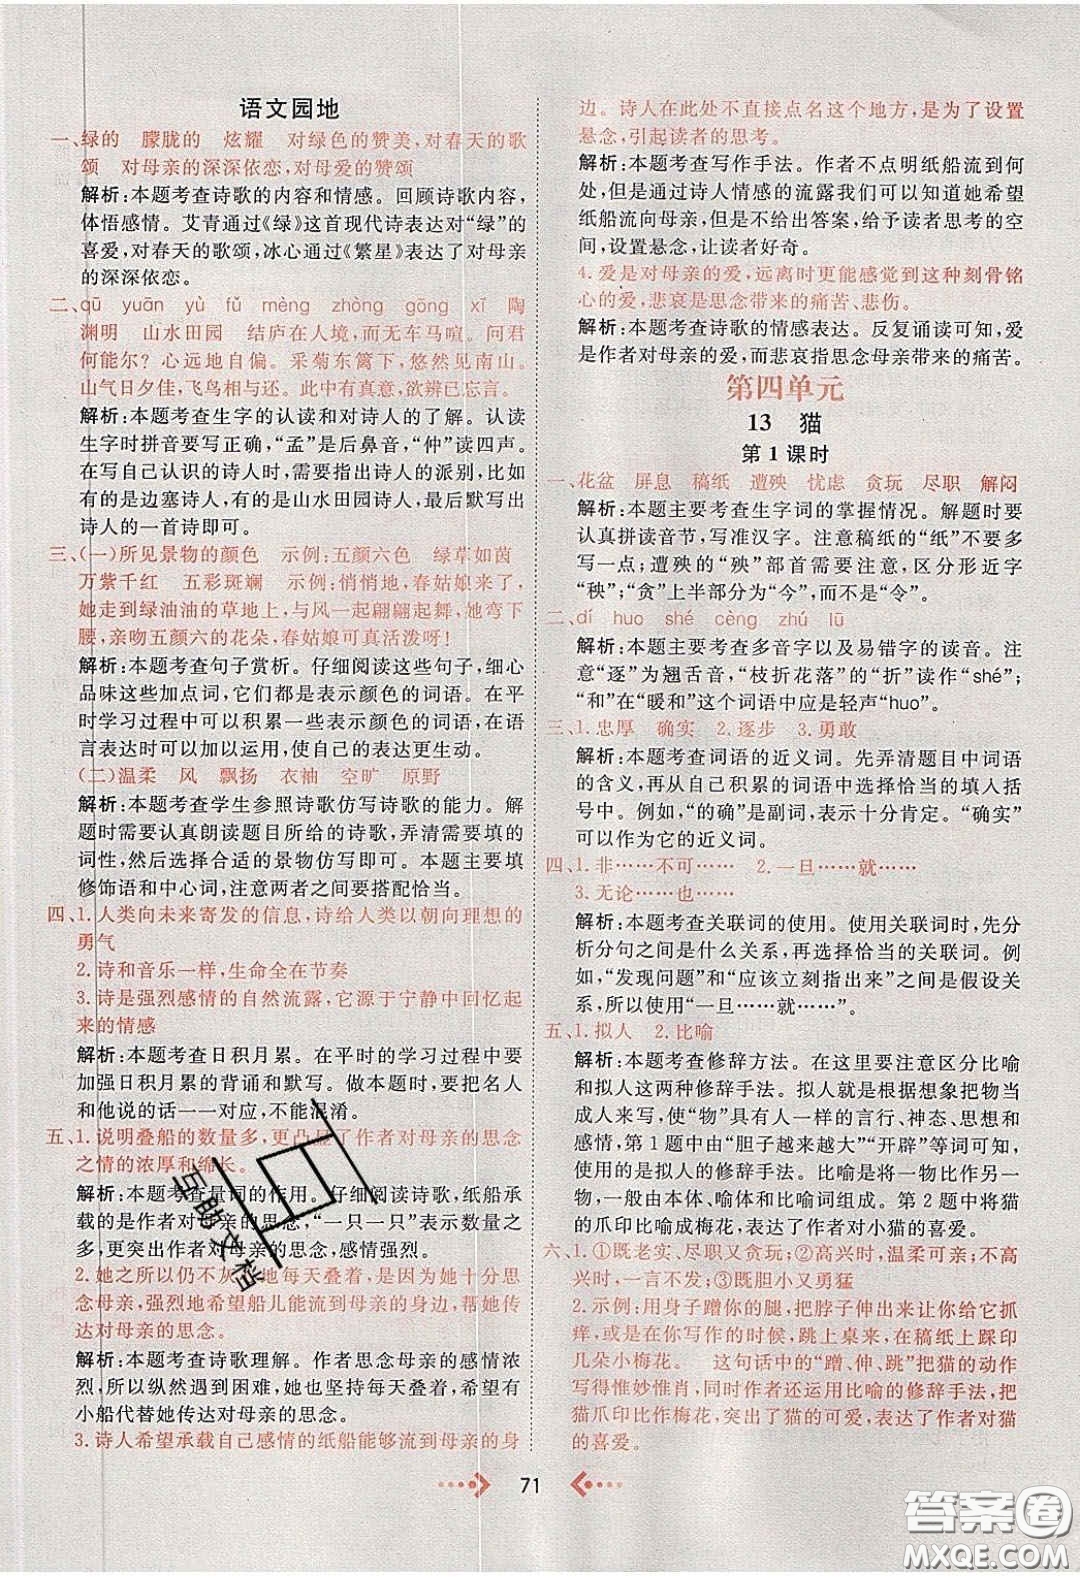 语文园地
一、绿的 朦胧的 炫耀 对绿色的赞美,对春天的歌
颂 对母亲的深深依恋,对母爱的赞颂
解析:本题考查诗歌的内容和情感。回顾诗歌内容,
体悟感情。艾青通过《绿》这首现代诗表达对“绿”的
喜爱,对春天的歌颂,冰心通过《繁星》表达了对母亲
的深深依恋。
二、qū yuān yù fǔ mèng zhòng gōng xī 陶
渊明 山水田园 结庐在人境,而无车马喧。问君
何能尔?心远地自偏。采菊东篱下,悠然见南山。
山气日夕佳,飞鸟相与还。此中有真意,欲辨已忘言。
解析:本题考查生字的认读和对诗人的了解。认读
生字时拼音要写正确,“孟”是后鼻音,“仲”读四声。
在写自己认识的诗人时,要写清诗人的派别,比如
有的是边塞诗人,有的是山水田园诗人,最后默写出
诗人的一首诗即可。
三、(一)所见景物的颜色 示例:五颜六色 绿草如茵
万紫千红 五彩斑斓 示例:悄悄地,春姑娘来了,
她走到绿油油的草地上,与风一起翩翩起舞,她弯下
腰,亲吻五颜六色的花朵,春姑娘可真活泼呀!
解析:本题考查句子赏析。仔细阅读这些句子,细心
品味这些加点词,它们都是表示颜色的词语。在平
时学习中可以积累一些表示颜色的词语,在语
言表达时可以加以运用,使自己的表达更生动。
(二)温柔 风 飘扬 衣袖 空旷 原野
解析:本题考查学生参照诗歌仿写诗歌的能力。解
题时需要认真朗读题目所给的诗歌,弄清需要填的
词性,然后选择合适的景物仿写即可。本题主要填
修饰语和中心词,注意两者间搭配恰当。
四、1.人类向未来寄发的信息,诗给人类以朝向理想的
勇气
2.诗和音乐一样,生命全在节奏
3.诗是强烈感情的自然流露,它源于宁静中回忆起
来的情感
解析:本题考查日积月累。在平时的学习过程中要
加强日积月累的背诵和默写。做本题时,要把名人
和他说的话一一对应,不能混淆。
五、1.说明叠船的数量多,更凸显了作者对母亲的思念
之情的浓厚和绵长。
解析:本题考查量词的作用。仔细阅读诗歌,纸船承
载的是作者对母亲的思念,“一只一只”表示数量之
多,更突出作者对母亲的思念,感情强烈。
2.她之所以仍不灰心,她每天叠着,是因为对母亲的
思念,强烈地希望船儿能流到母亲的身边,使她传
达对母亲的思念。
解析:本题考查诗歌理解。作者思念母亲的感情浓
烈,所以纵然遇到困难,她也坚持每天叠着,希望有
小船代替她传达对母亲的思念。
3.诗人希望承载自己感情的纸船能够流到母亲的身
边。诗人在此处不直接点名这个地方,是为了设置
悬念,引起读者的思考。
解析:本题考查写作手法。作者不点明纸船流到何
处,但是通过诗人情感的流露我们可以知道她希望
纸船流向母亲,但是不给出答案,给予读者思考的空
间,设置悬念,让读者好奇。
4.爱是对母亲的爱,远离时更能感觉到这种刻骨铭
心的爱,悲哀是思念带来的痛苦、悲伤。
解析:本题考查诗歌的情感表达。反复诵读可知,爱
是作者对母亲的爱,而悲哀指思念母亲带来的痛苦。
第四单元
13 猫
第1课时
一、花盆 屏息 稿纸 遭殃 忧虑 贪玩 尽职 解闷
解析:本题主要考查生字词的掌握情况。解题时要
认真拼读音节,写准汉字。注意稿纸的“纸”不要多
写一点;遭殃的“殃”部首需要注意,区分形近字
“秧”;“贪”上半部分为“今”,而不是“令”。
二、dí huo shé cèng zhú lǜ
解析:本题主要考查多音字以及易错字的读音。注
意“逐”为翘舌音,“枝折花落”的“折”读作“shé”;
“和”在“暖和”这个词语中应是轻声“huo”。
三、1.忠厚 确实 2.逐步 3.勇敢
解析:本题考查词语的近义词。先弄清题目中词语
的含义,再从自己积累的词语中选择恰当的填入括
号中。例如,“的确”是副词,表示十分肯定。“确实”
可以作为它的近义词。
四、1.非……不可…… 2.一旦……就……
3.无论……也……
解析:本题考查关联词的使用。使用关联词时,先分
析分句之间是什么关系,再选择恰当的关联词。例
如,“发现问题”和“应该立刻指出来”是假设关
系,所以使用“一旦……就……”。
五、1.拟人 2.比喻
解析:本题考查修辞方法。在这里要注意区分比喻
和拟人这两种修辞手法。拟人就是根据想象把物当
成人来写,使“物”具有人一样的言行、神态、思想和
感情,第1题中由“胆子越来越大”“开辟”等词可知,
使用的是拟人的修辞手法。比喻是将一物比作另一
物,一般由本体、喻体和比喻词组成。第2题中将猫
的爪印比喻成梅花,表达了作者对小猫的喜爱。
六、1.①既老实、尽职又贪玩;②高兴时,温柔可亲;不高
兴时,一言不发;③既胆小又勇猛
2.示例:用身子蹭你的腿,把脖子伸出来让你给它抓
痒,或是在你写作的时候,跳上桌来,在稿纸上踩印
几朵小梅花。 这句话中的“蹭、伸、跳”把猫的动作
写得惟妙惟肖,同时作者还运用比喻的修辞手法,把
猫爪印比作梅花,突出了猫的可爱,表达了作者对猫
的喜爱。
71
互助文档
答案圈
MXQE.COM